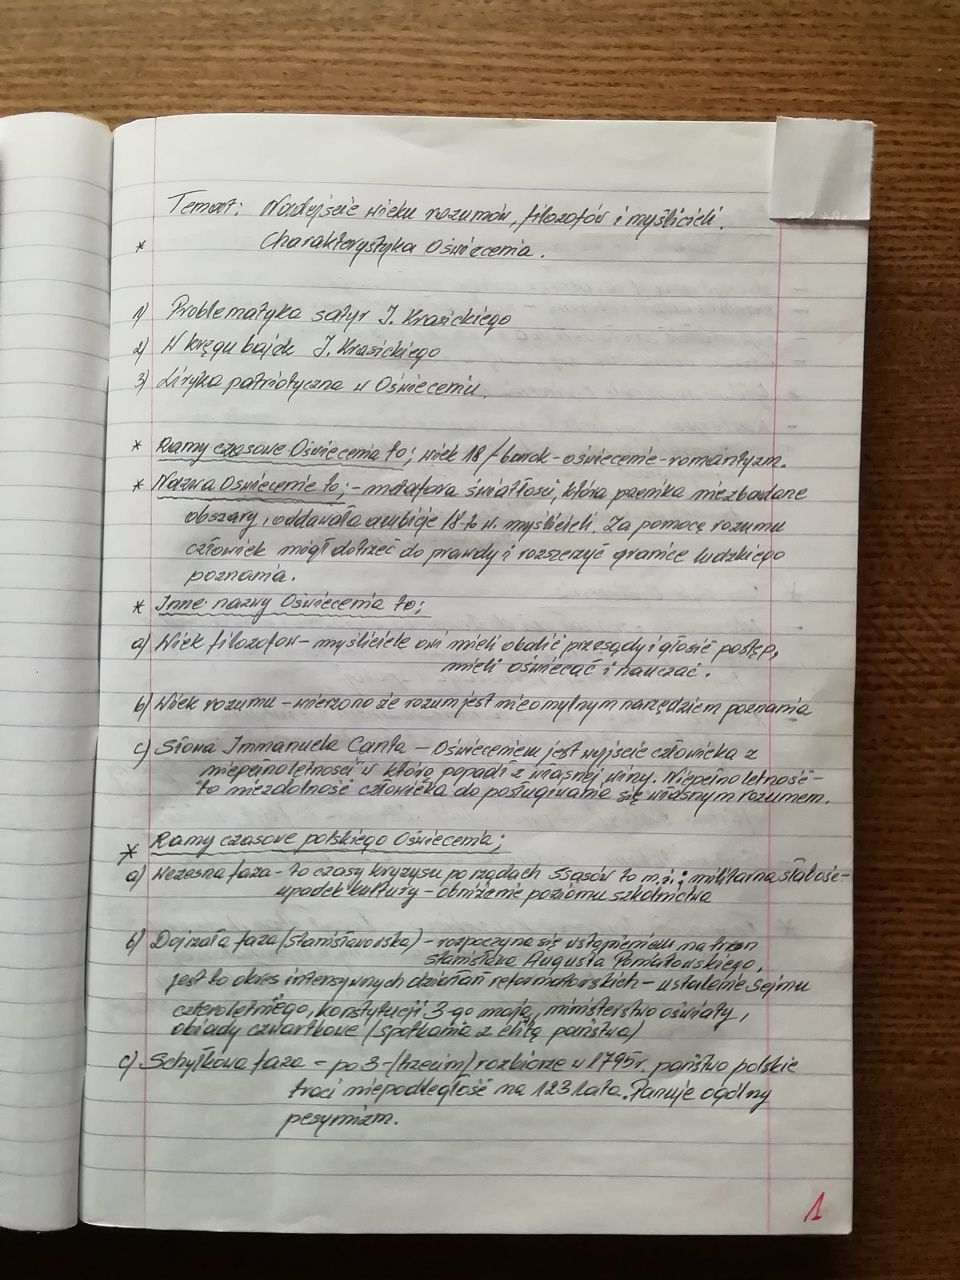 Temat: Nadejście wieku rozumów, filozofów i myślicieli.
* Charakterystyka Oświecenia.
1) Problematyka satyr J. Krasickiego
2) W kręgu bajek J. Krasickiego
3) Liryka patriotyczna w Oświeceniu.
* Ramy czasowe Oświecenia to; wiek 18 / barok - oświecenie - romantyzm.
* Nazwa Oświecenie to; - metafora światłości, która przenika niezbadane
obszary, oddawała ambicje 18-to w. myślicieli. Za pomocą rozumu
człowiek mógł dotrzeć do prawdy i rozszerzyć granice ludzkiego
poznania.
* Inne nazwy Oświecenia to;
a) Wiek filozofów - myśliciele owi mieli obalić przesądy i głosić postęp,
mieli oświecać i nauczać.
b) Wiek rozumu - wierzono że rozum jest nieomylnym narzędziem poznania
c) Słowa Immanuela Canta - Oświeceniem jest wyjście człowieka z
niepełnoletności w którą popadł z własnej winy. Niepełnoletność -
to niezdolność człowieka do posługiwania się własnym rozumem.
* Ramy czasowe polskiego Oświecenia;
a) Wczesna faza - to czasy kryzysu po rządach Sasów to m.i.: militarna słabość -
upadek kultury - obniżenie poziomu szkolnictwa
b) Dojrzała faza (Stanisławowska) - rozpoczyna się wstąpieniem na tron
Stanisława Augusta Poniatowskiego,
jest to okres intensywnych działań reformatorskich - ustalenie Sejmu
czteroletniego, konstytucji 3-go maja, ministerstwo oświaty,
obiady czwartkowe (spotkania z elitą państwa)
c) Schyłkowa faza - po 3-(trzecim) rozbiorze w 1795r. państwo polskie
traci niepodległość na 123 lata. Panuje ogólny
pesymizm.
1